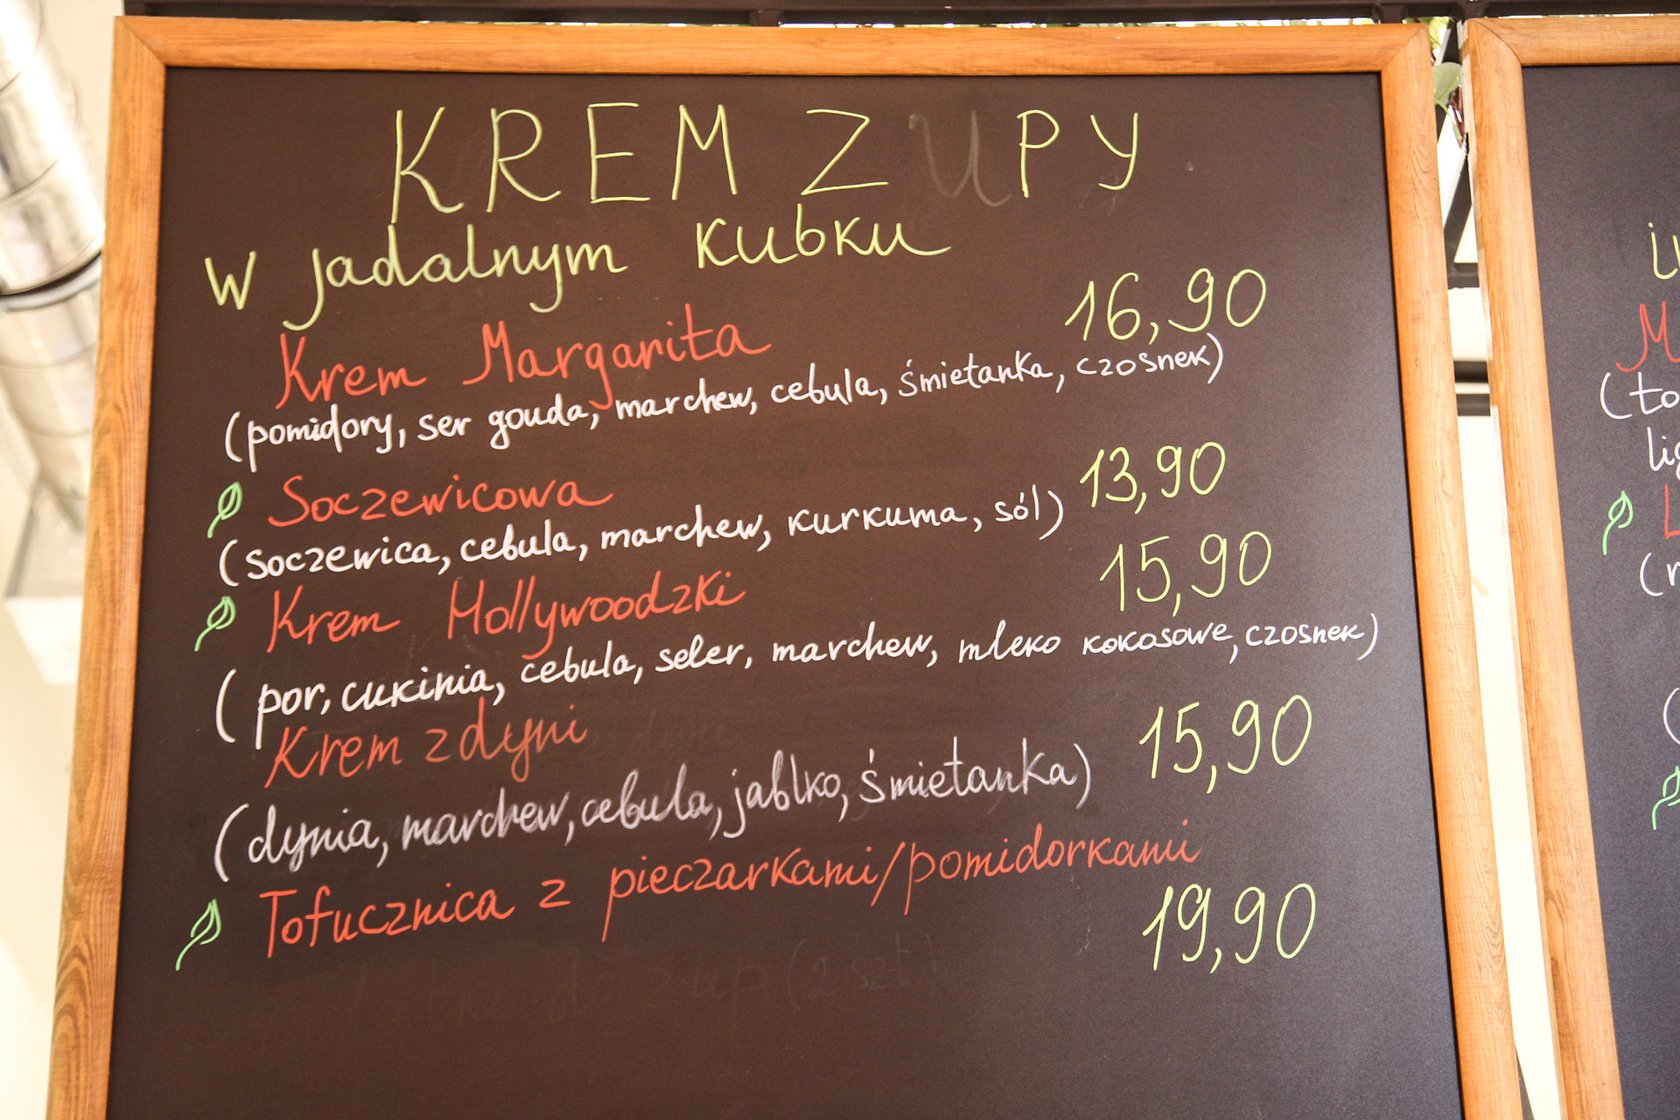 KREM ZUPY
w jadalnym kubku
Krem Margarita 16,90
(pomidory, ser gouda, marchew, cebula, śmietanka, czosnek)
Soczewicowa 13,90
(soczewica, cebula, marchew, kurkuma, sól)
Krem Hollywoodzki 15,90
(por, cukinia, cebula, seler, marchew, mleko kokosowe, czosnek)
Krem z dyni 15,90
(dynia, marchew, cebula, jabłko, śmietanka)
Tofucznica z pieczarkami/pomidorkami
19,90